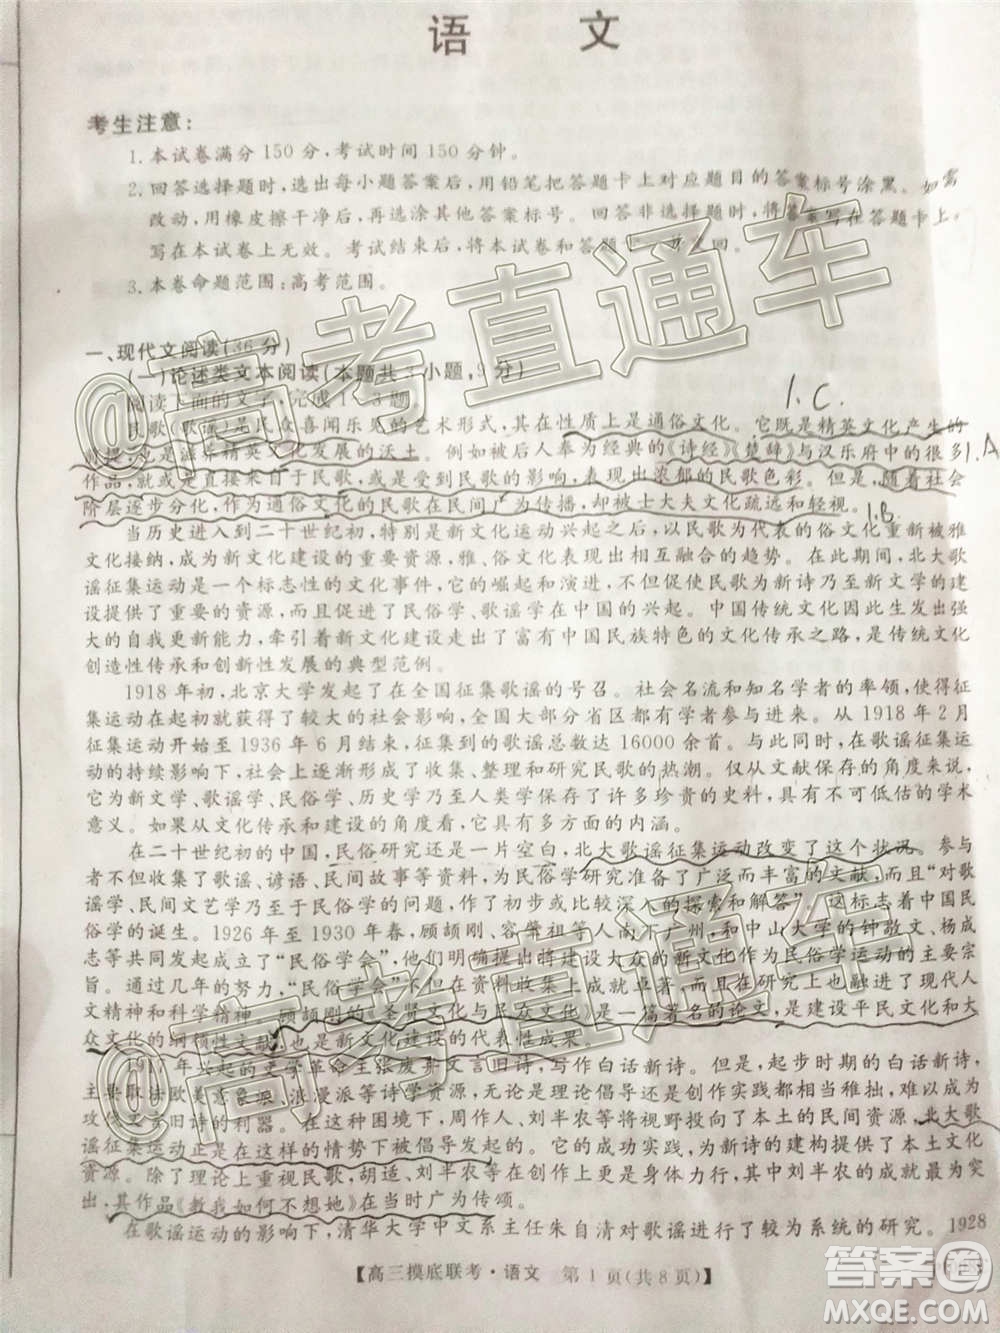 语 文
考生注意:
1.本试卷满分150分,考试时间150分钟。
2.回答选择题时,选出每小题答案后,用铅笔把答题卡上对应题目的答案标号涂黑。如需
改动,用橡皮擦干净后,再选涂其他答案标号。回答非选择题时,将答案写在答题卡上,
写在本试卷上无效。考试结束后,将本试卷和答题卡一并交回。
3.本卷命题范围:高考范围。
一、现代文阅读(36分)
(一)论述类文本阅读(本题共3小题,9分)
阅读下面的文字,完成1~3题。
1.C.
民歌(歌谣)是民众喜闻乐见的艺术形式,其在性质上是通俗文化。它既是精英文化产生的
前提,也是滋养精英文化发展的沃土。例如被后人奉为经典的《诗经》《楚辞》与汉乐府中的很多
1.A
作品,就或是直接来自于民歌,或是受到民歌的影响,表现出浓郁的民歌色彩。但是,随着社会
阶层逐步分化,作为通俗文化的民歌在民间广为传播,却被士大夫文化疏远和轻视。
1.B.
当历史进入到二十世纪初,特别是新文化运动兴起之后,以民歌为代表的俗文化重新被雅
文化接纳,成为新文化建设的重要资源,雅、俗文化表现出相互融合的趋势。在此期间,北大歌
谣征集运动是一个标志性的文化事件,它的崛起和演进,不仅促使民歌为新诗乃至新文学的建
设提供了重要的资源,而且促进了民俗学、歌谣学在中国的兴起。中国传统文化因此生发出强
大的自我更新能力,牵引着新文化建设走出了富有中国民族特色的文化传承之路,是传统文化
创造性传承和创新性发展的典型范例。
1918年初,北京大学发起了在全国征集歌谣的号召。社会名流和知名学者的率领,使得
征集运动在起初就获得了较大的社会影响,全国大部分省区都有学者参与进来。从1918年2月
征集运动开始至1936年6月结束,征集到的歌谣总数达16000余首。与此同时,在歌谣征集运
动的持续影响下,社会上逐渐形成了收集、整理和研究民歌的热潮。仅从文献保存的角度看,
它为新文学、歌谣学、民俗学、历史学乃至文化人类学保存了许多珍贵的史料,具有不可低估的学术
意义。如果从文化传承和建设的角度看,它又具有多方面的内涵。
在二十世纪初的中国,民俗研究还是一片空白,北大歌谣征集运动改变了这个状况。参与
者不但收集了歌谣、谚语、民间故事等资料,为民俗学研究准备了广泛而丰富的文献,而且“对歌
谣学、民间文艺学乃至于民俗学的问题,作了初步或比较深入的探索和解答”。这标志着中国民
俗学的诞生。1926年至1930年春,顾颉刚、容肇祖等人南下广州,和中山大学的钟敬文、杨成
志等共同发起成立了“民俗学会”,他们明确提出将建设大众的新文化作为该学会的宗
旨。通过几年的努力,“民俗学会”在资料收集上成就卓著,而且还极大地促进了现代人
文精神和科学精神。顾颉刚的《圣贤文化与民众文化》是一篇著名的论文,是建设平民文化和大
众文化的纲领性文献,也是新文化建设的代表性成果。
1917年兴起的文学革命主张废弃文言旧诗,写作白话新诗。但是,起步时期的白话新诗,
主要取法欧美意象派、浪漫派等诗学资源,无论是理论倡导还是诗歌实践,都没有能够成为
攻伐文言旧诗的利器。在这种困境下,周作人、刘半农等将视野投向了本土的民间资源,北大歌
谣征集运动正是在这样的情势下被发起的。它的成功实践,为新诗的建构提供了本土文化
资源。除了理论上重视民歌,胡适、刘半农等在创作上更是身体力行,其中刘半农的成就最为突
出,其作品《教我如何不想她》在当时广为传颂。
在歌谣运动的影响下,清华大学中文系主任朱自清对歌谣进行了较为系统的研究。1928
【高三摸底联考·语文 第1页(共8页)】
@高考直通车
@高考直通车
答案圈
MXQE.COM